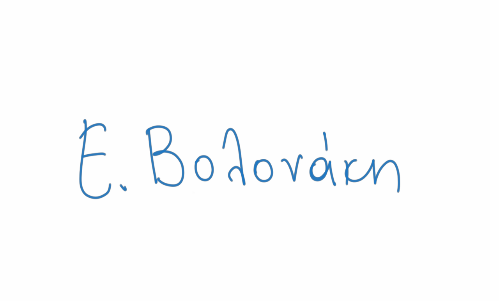 Ε. Βολονάκη